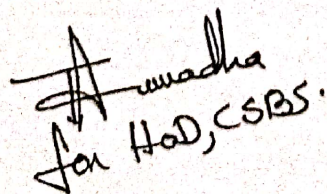 Anuradha
for HoD, CSBS.